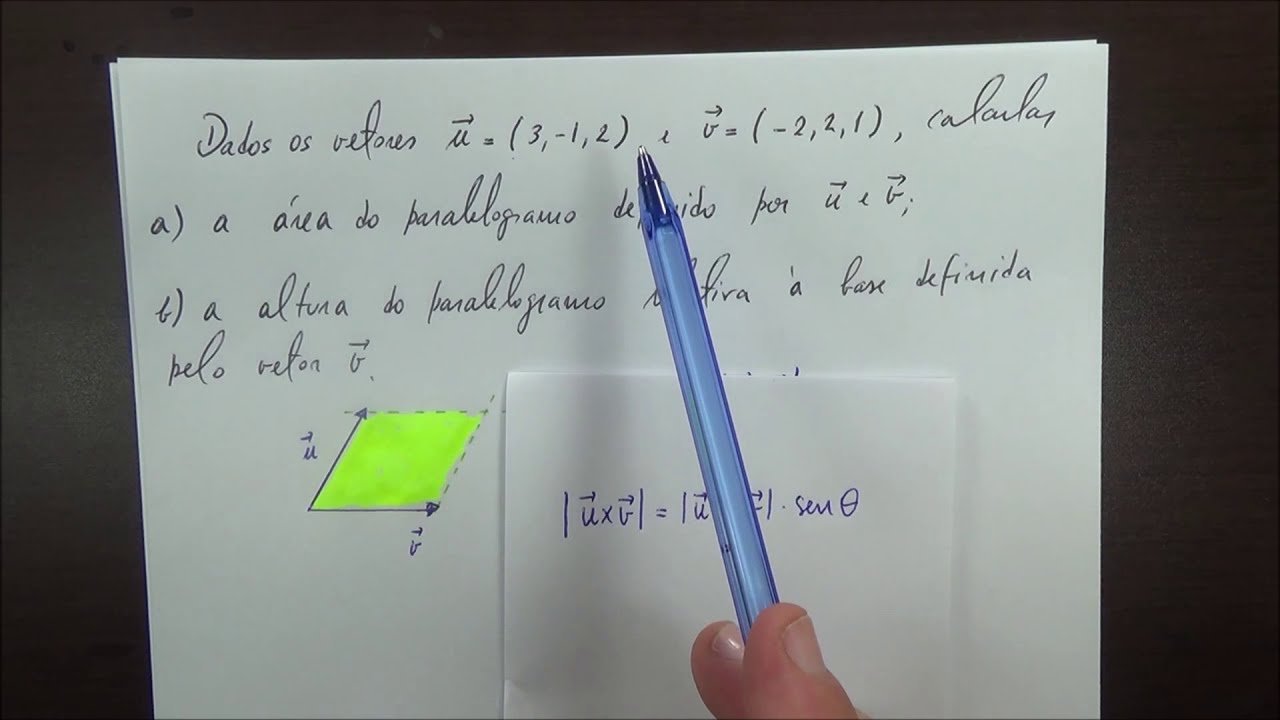 Dados os vetores u⃗ = (3,-1,2) e v⃗ = (-2,2,1), calcular
a) a área do paralelogramo por u⃗ e v⃗;
b) a altura do paralelogramo à base definida
pelo vetor v⃗.
u⃗
v⃗
|u⃗×v⃗| = |u⃗ | · sen θ